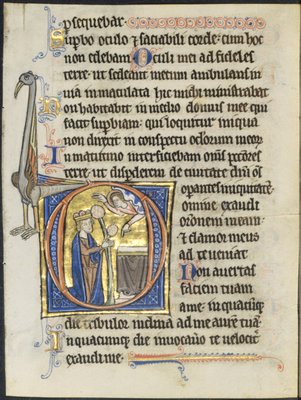 psequebar
Supbo oculo & īsaciabili corde: cum hoc
non edebam Oculi mei ad fideles
terre ut sedeant mecum ambulans in
uia inmaculata hic michi ministrabat
Non habitabit in medio domus mee qui
facit supbiam: qui loquitur iniqua
non direxit in conspectu oculorum meor
In matutino interficiebam omīs pctōres
terre ut disperderem de ciuitate dnī oms
opantes iniquitatem
Domine exaudi
orōnem meam:
& clamor meus
ad te ueniat
Non auertas
faciem tuam
a me: in quacūq;
die tribulor inclina ad me aurē tuā
In quacumque die inuocauero te velociť
exaudi me.